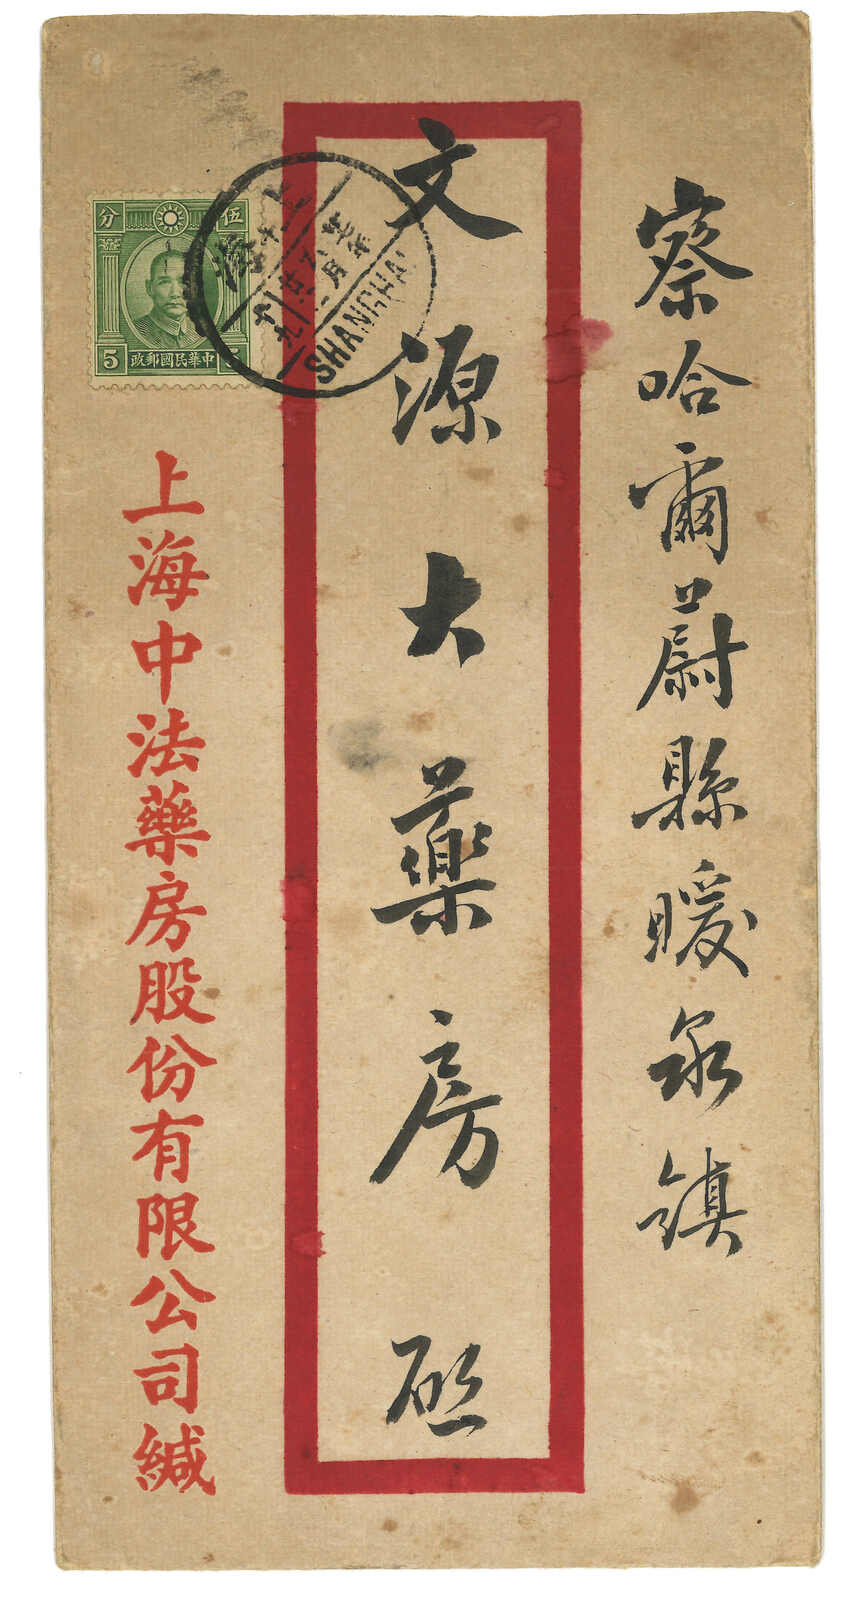 察哈爾蔚縣暖泉鎮
文源大藥房啟
上海中法藥房股份有限公司緘
伍
分
5
政郵國民華中
上海
SHANGHAI